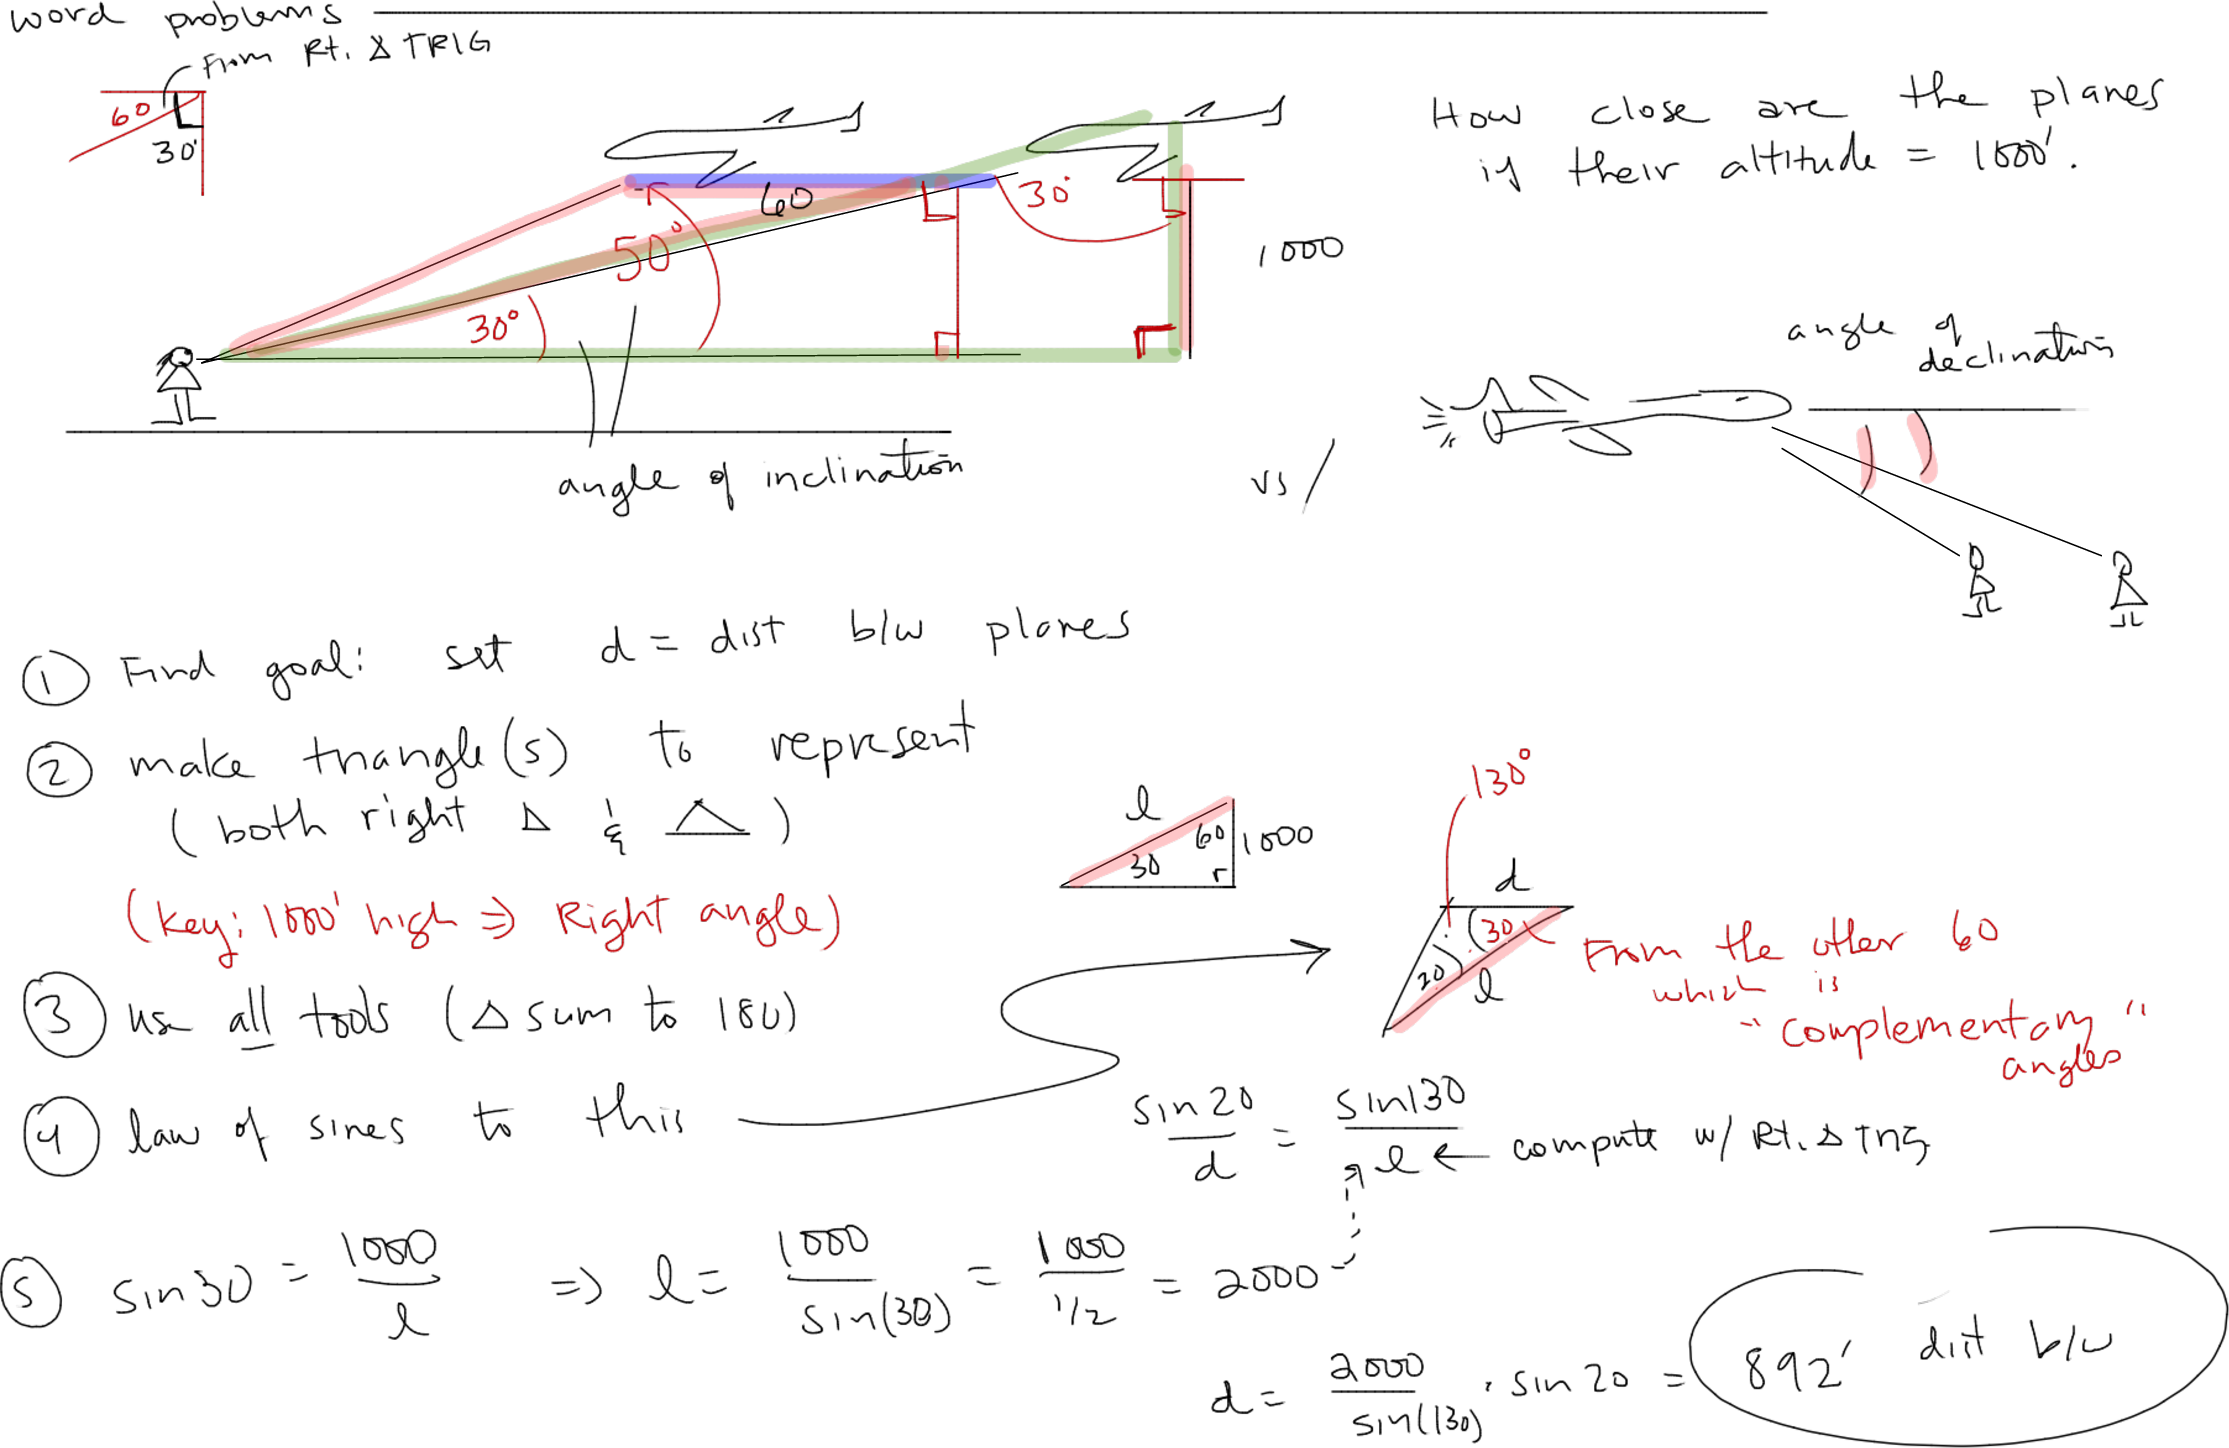 word problems
From Rt. △ TRIG
60
30
How close are the planes
if their altitude = 1000'.
60
30°
50°
30°
1000
angle of inclination
vs
angle of declination
① Find goal: set d = dist b/w planes
② make triangle(s) to represent
(both right △ & △)
(key: 1000' high ⇒ Right angle)
l
60
30
r
1000
130°
d
30
20
l
From the other 60
which is
"complementary"
angles
③ use all tools (△ sum to 180)
④ law of sines to this
sin 20 / d = sin 130 / l ← compute w/ Rt. △ Trig
⑤ sin 30 = 1000 / l ⇒ l = 1000 / sin(30) = 1000 / 1/2 = 2000
d = 2000 / sin(130) · sin 20 = 892' dist b/w